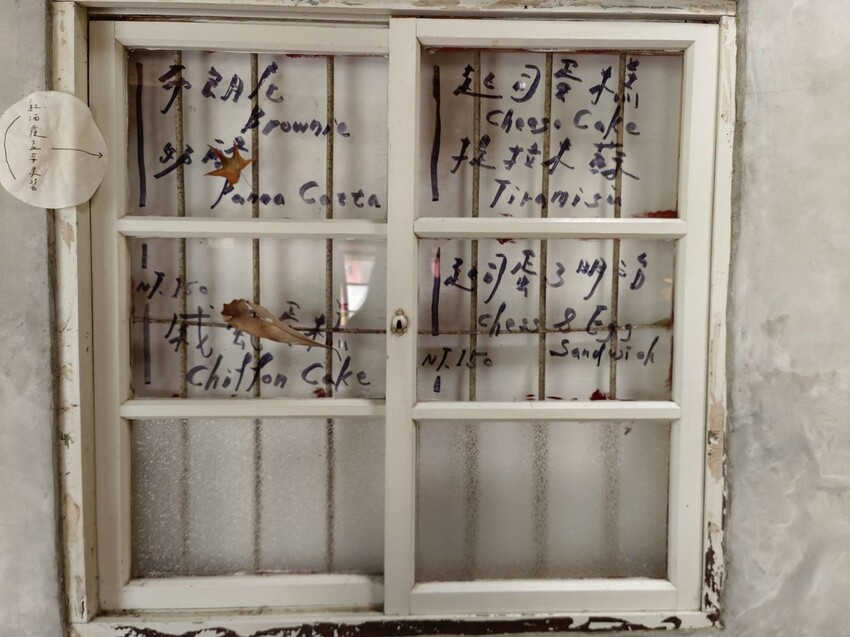 布朗尼
Brownie
奶酪
Panna Cotta
NT.150
戚風蛋糕
Chiffon Cake
起司蛋糕
Cheese Cake
提拉米蘇
Tiramisu
起司蛋三明治
Chess & Egg
Sandwich
NT.150